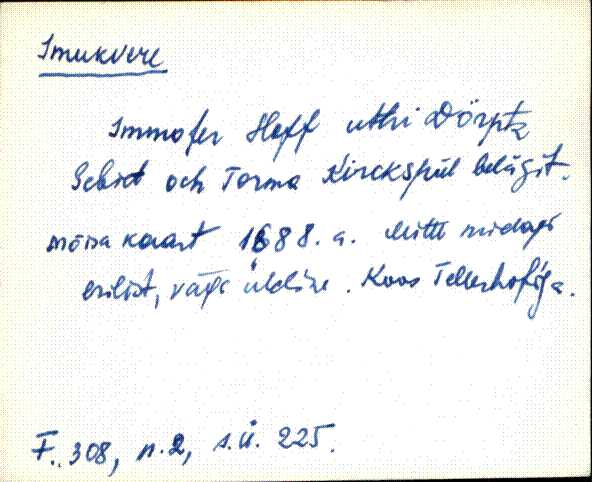 Imukvere
Immofer Hoff uthi Dörptz
Gebiet och Torma Kirckspiel belägit.
mõisa kaart 1688. a. Mitte midagi
erilist, väga üldine. Koos Tellerhofiga.
F. 308, n. 2, s.ü. 225.